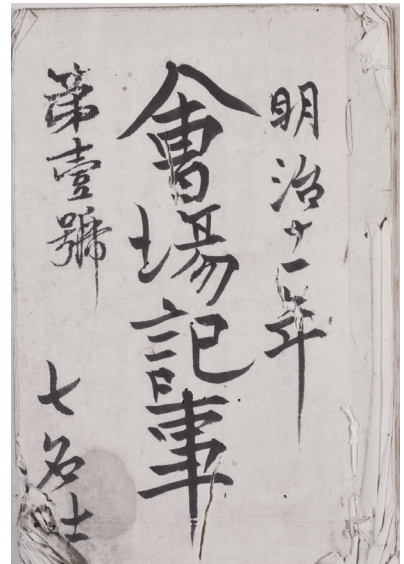 明治廿一年
會場記事
第壹號
七名士